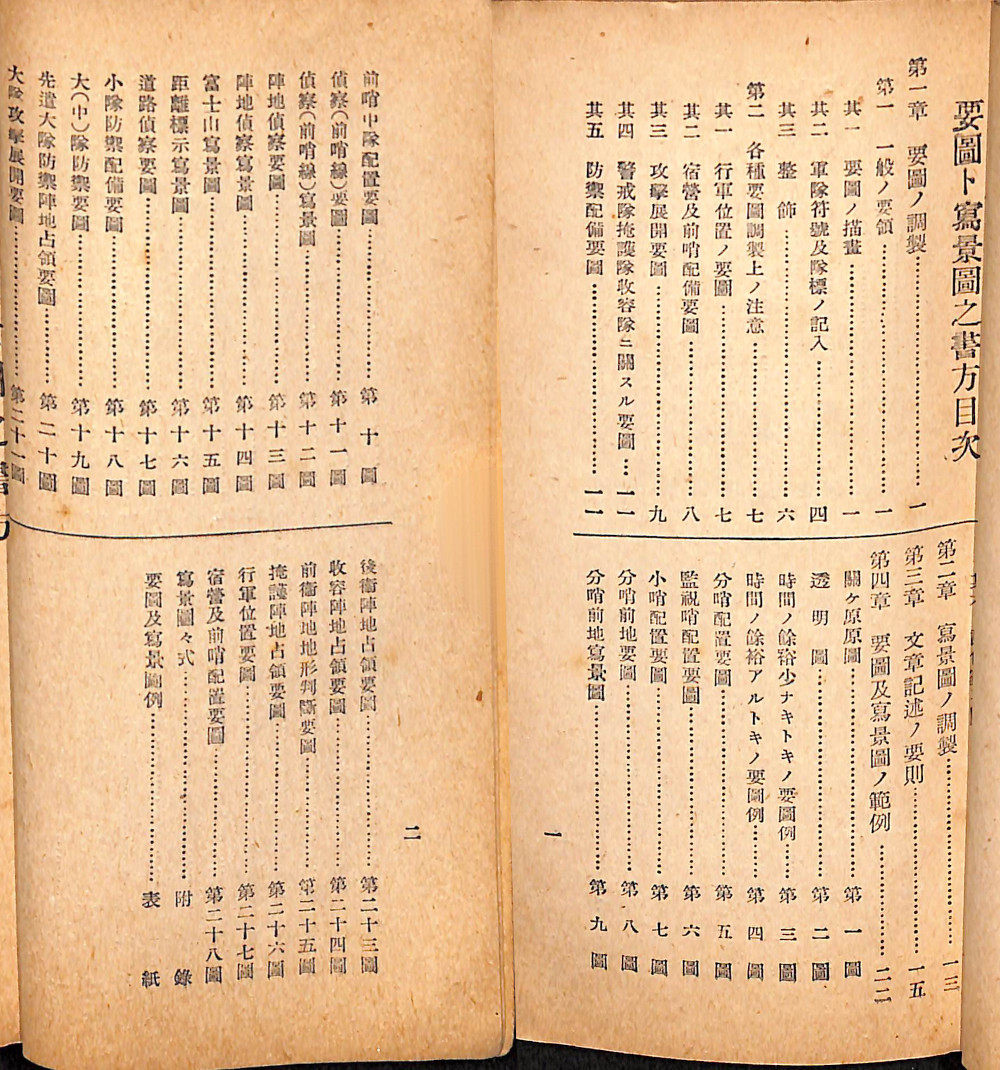 要圖ト寫景圖之書方目次
第一章　要圖ノ調製………一
第一　一般ノ要領………一
其一　要圖ノ描畫………一
其二　軍隊符號及隊標ノ記入………四
其三　整飾………六
第二　各種要圖調製上ノ注意………七
其一　行軍位置ノ要圖………七
其二　宿營及前哨配備要圖………八
其三　攻擊展開要圖………九
其四　警戒隊掩護隊收容隊ニ關スル要圖…一一
其五　防禦配備要圖………一一
第二章　寫景圖ノ調製………一三
第三章　文章記述ノ要則………一五
第四章　要圖及寫景圖ノ範例………二二
關ヶ原原圖………第一圖
透明圖………第二圖
時間ノ餘裕少ナキトキノ要圖例……第三圖
時間ノ餘裕アルトキノ要圖例………第四圖
分哨配置要圖………第五圖
監視哨配置要圖………第六圖
小哨配置要圖………第七圖
分哨前地要圖………第八圖
分哨前地寫景圖………第九圖
一
前哨中隊配置要圖………第十圖
偵察(前哨線)要圖………第十一圖
偵察(前哨線)寫景圖………第十二圖
陣地偵察要圖………第十三圖
陣地偵察寫景圖………第十四圖
富士山寫景圖………第十五圖
距離標示寫景圖………第十六圖
道路偵察要圖………第十七圖
小隊防禦配備要圖………第十八圖
大(中)隊防禦要圖………第十九圖
先遣大隊防禦陣地占領要圖………第二十圖
大隊攻擊展開要圖………第二十一圖
後衞陣地占領要圖………第二十三圖
收容陣地占領要圖………第二十四圖
前衞陣地地形判斷要圖………第二十五圖
掩護陣地占領要圖………第二十六圖
行軍位置要圖………第二十七圖
宿營及前哨配置要圖………第二十八圖
寫景圖々式………附錄
要圖及寫景圖範例………表紙
二